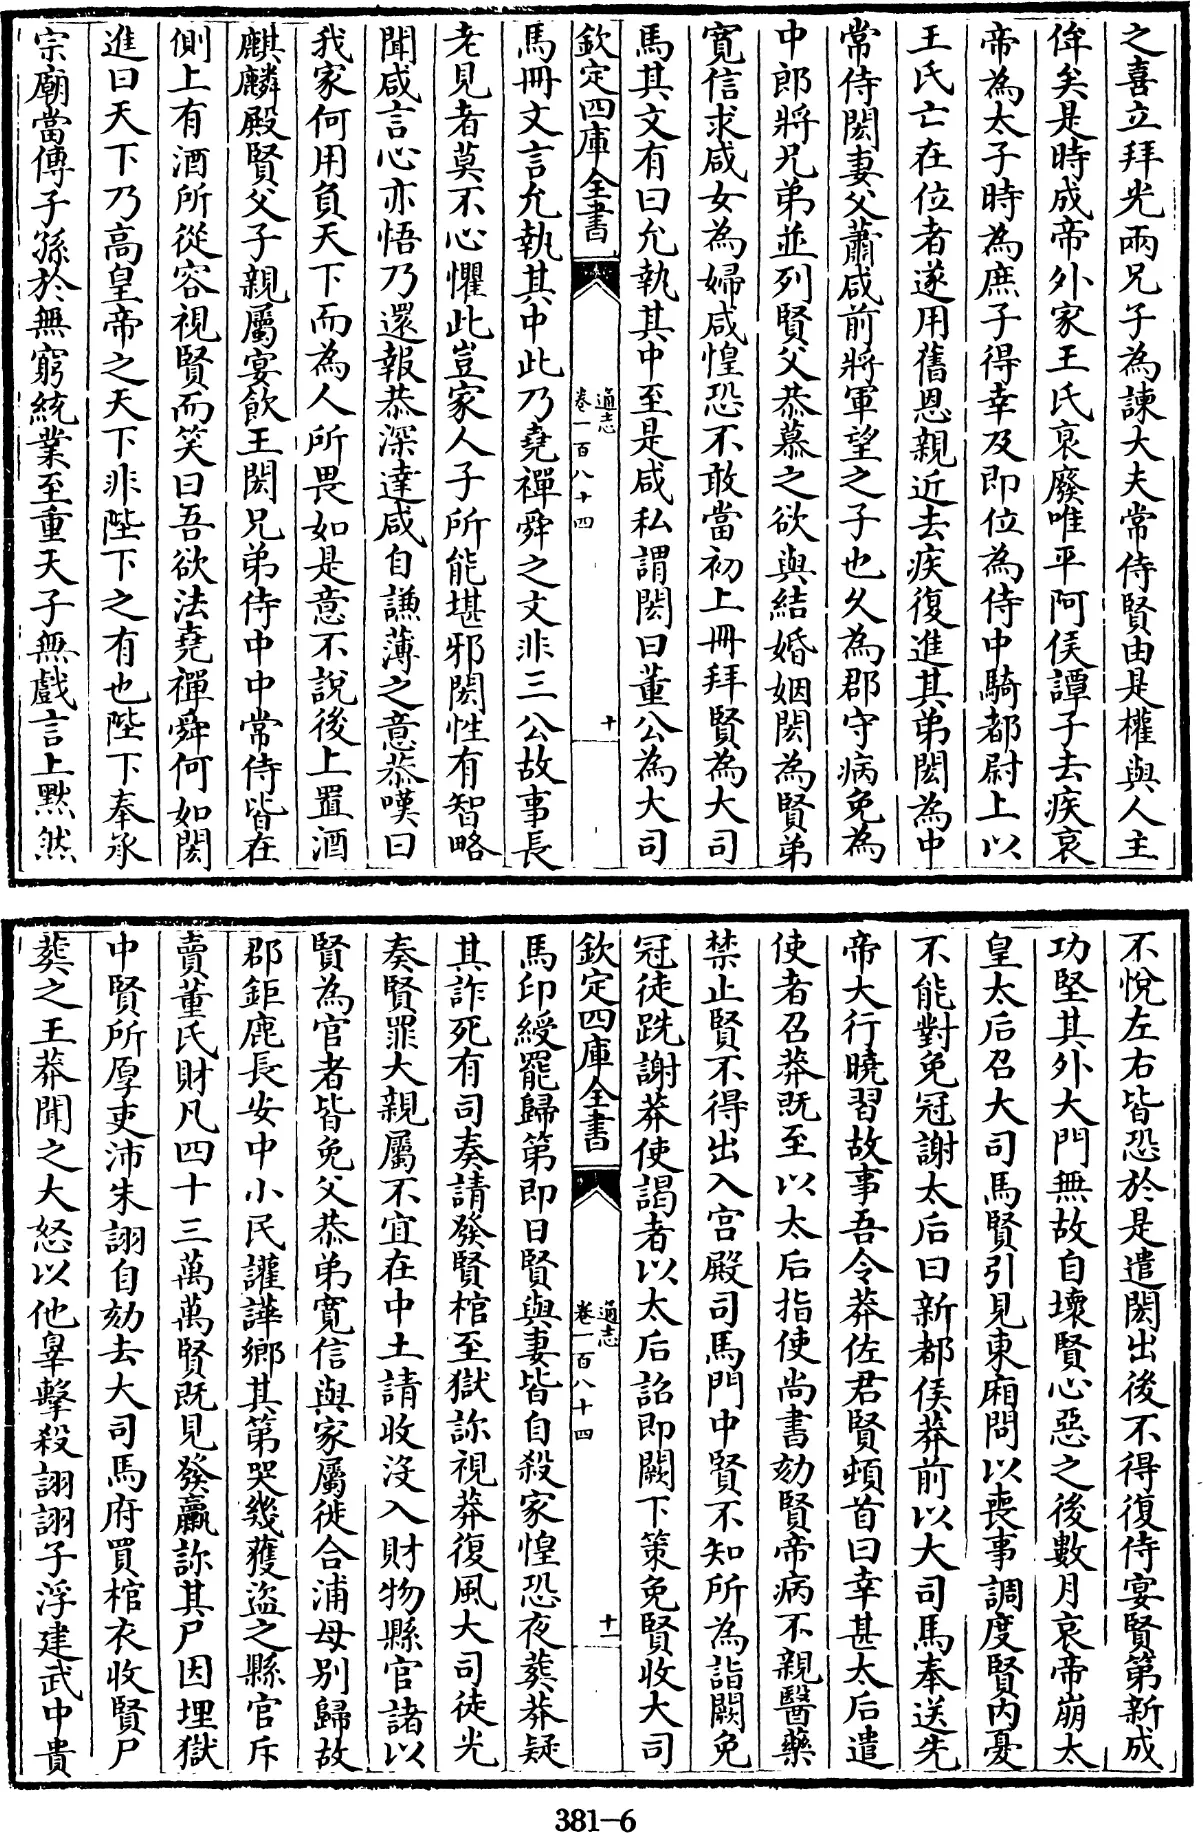 之喜立拜光兩兄子為諫大夫常侍賢由是權與人主
侔矣是時成帝外家王氏衰廢唯平阿侯譚子去疾哀
帝為太子時為庶子得幸及即位為侍中騎都尉上以
王氏亡在位者遂用舊恩親近去疾復進其弟閎為中
常侍閎妻父蕭咸前將軍望之子也久為郡守病免為
中郎將兄弟並列賢父恭慕之欲與結婚姻閎為賢弟
寛信求咸女為婦咸惶恐不敢當初上冊拜賢為大司
馬其文有曰允執其中至是咸私謂閎曰董公為大司
欽定四庫全書
通志
卷一百八十四
十
馬冊文言允執其中此乃堯禪舜之文非三公故事長
老見者莫不心懼此豈家人子所能堪邪閎性有智略
聞咸言心亦悟乃還報恭深達咸自謙薄之意恭嘆曰
我家何用負天下而為人所畏如是意不說後上置酒
麒麟殿賢父子親屬宴飲王閎兄弟侍中中常侍皆在
側上有酒所從容視賢而笑曰吾欲法堯禪舜何如閎
進曰天下乃高皇帝之天下非陛下之有也陛下奉承
宗廟當傳子孫於無窮統業至重天子無戲言上默然
不悅左右皆恐於是遣閎出後不得復侍宴賢第新成
功堅其外大門無故自壞賢心惡之後數月哀帝崩太
皇太后召大司馬賢引見東廂問以喪事調度賢內憂
不能對免冠謝太后曰新都侯莽前以大司馬奉送先
帝大行曉習故事吾令莽佐君賢頓首曰幸甚太后遣
使者召莽既至以太后指使尚書劾賢帝病不親醫藥
禁止賢不得出入宫殿司馬門中賢不知所為詣闕免
冠徒跣謝莽使謁者以太后詔即闕下策免賢收大司
欽定四庫全書
通志
卷一百八十四
十一
馬印綬罷歸第即日賢與妻皆自殺家惶恐夜葬莽疑
其詐死有司奏請發賢棺至獄訴視莽復風大司徒光
奏賢罪大親屬不宜在中土請收沒入財物縣官諸以
賢為官者皆免父恭弟寛信與家屬徙合浦母别歸故
郡鉅鹿長安中小民讙譁鄉其第哭幾獲盜之縣官斥
賣董氏財凡四十三萬萬賢既見發臝訴其尸因埋獄
中賢所厚吏沛朱詡自劾去大司馬府買棺衣收賢尸
葬之王莽聞之大怒以他辠擊殺詡詡子浮建武中貴
381-6